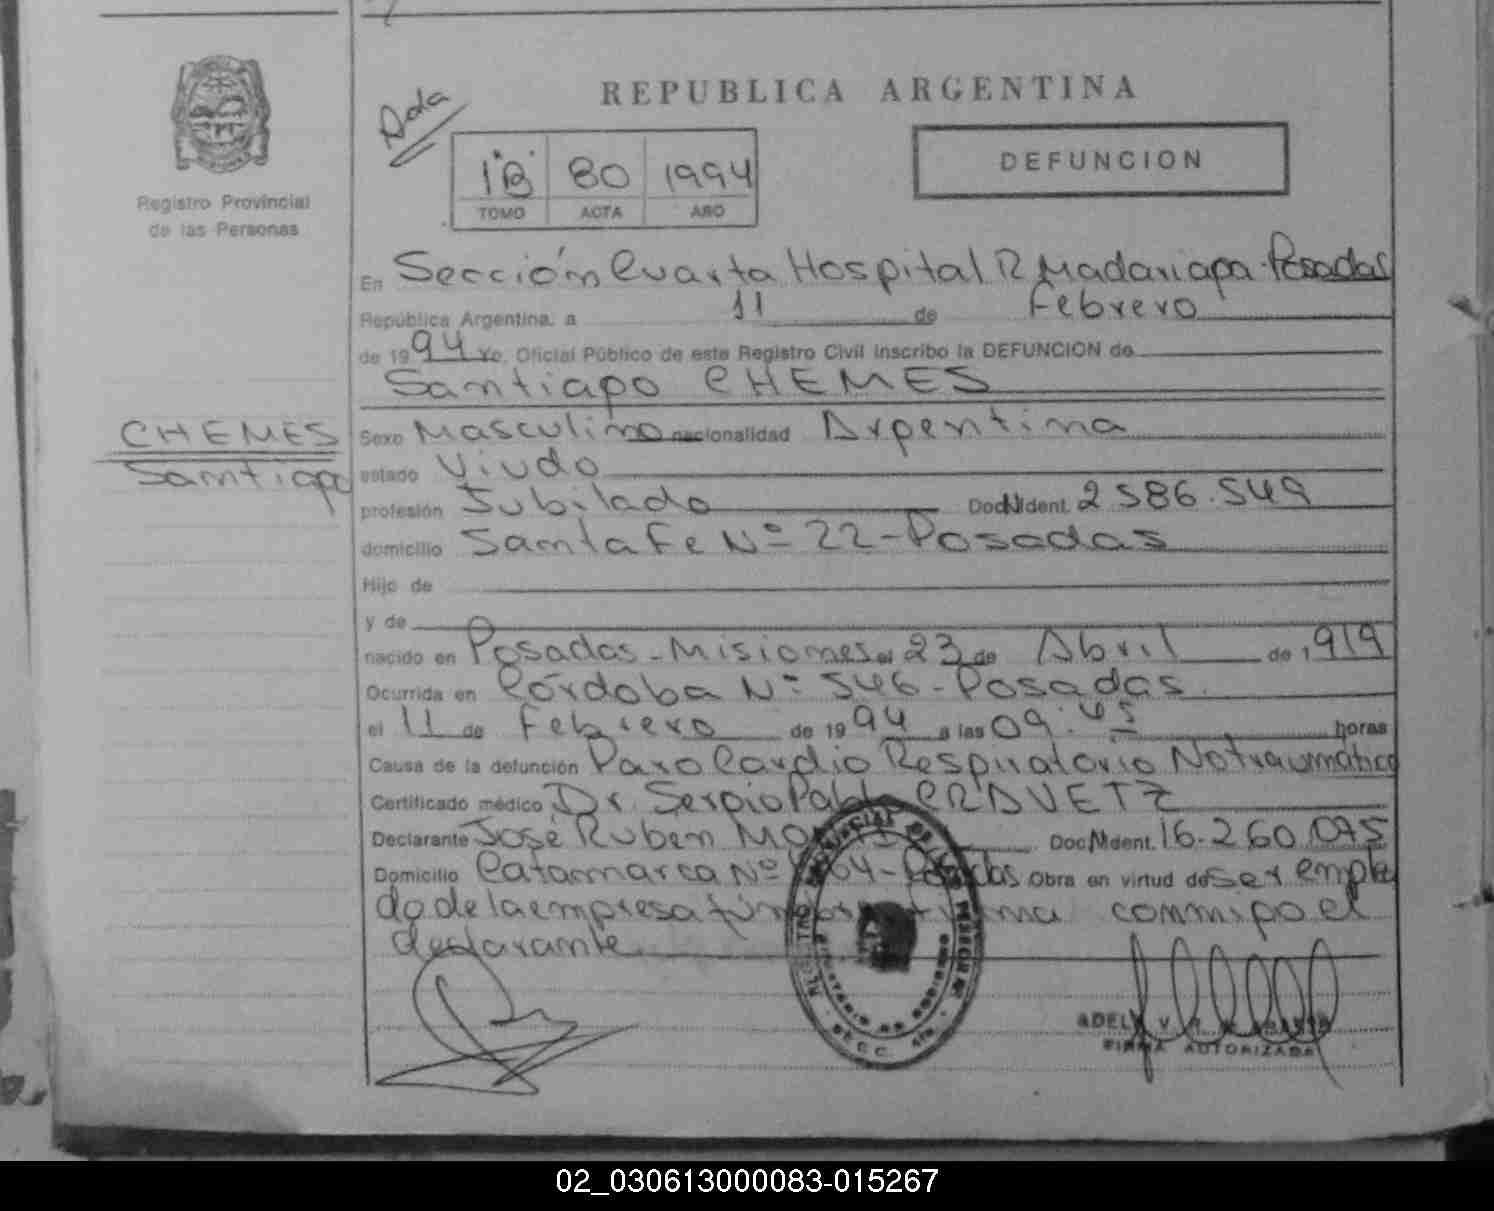 REPUBLICA ARGENTINA
Registro Provincial
de las Personas
1"B" 80 1994
TOMO ACTA AÑO
DEFUNCION
En Sección Cuarta Hospital R Madariaga-Posadas
República Argentina, a 11 de Febrero
de 1994 Yo, Oficial Público de este Registro Civil inscribo la DEFUNCION de
Santiago CHEMES
CHEMES
Santiago
Sexo Masculino nacionalidad Argentina
estado Viudo
profesión Jubilado Doc. Ident. 2.586.549
domicilio Santa Fe Nº 22-Posadas
Hijo de
y de
nacido en Posadas-Misiones el 23 de Abril de 1919
Ocurrida en Córdoba Nº 546-Posadas.
el 11 de Febrero de 1994 a las 09:45 horas
Causa de la defunción Paro Cardio Respiratorio No traumático
Certificado médico Dr. Sergio Pablo CRAVETZ
Declarante José Ruben Doc. Ident. 16.260.095
Domicilio Catamarca Nº Posadas Obra en virtud de ser emplea
do de la empresa conmigo el
declarante
REGISTRO PROVINCIAL DE LAS PERSONAS
SECC. 4ta.
FIRMA AUTORIZADA
02_030613000083-015267